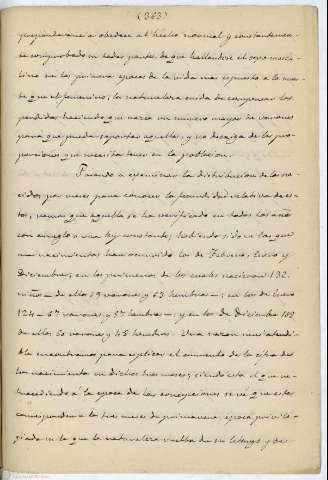 (363)
preponderancia obedece al hecho normal y constantemen-
te comprobado en todas partes, de que hallándose el sexo mascu-
lino en los primeros épocas de la vida mas espuesto a la muer-
te que el femenino, la naturaleza cuida de compensar las
perdidas haciendo que nazca un numero mayor de varones
para que pueda soportar aquellas, y no decaiga de las pro-
porciones que necesita tener en la poblacion.
Pasando a examinar la distribucion de los na-
cidos por meses para conocer la fecundidad relativa de es-
tos, vemos que aquella se ha verificado en todos los años
con arreglo a una ley constante, habiendo sido en los que
mas nacimientos han ocurrido los de Febrero, Enero y
Diciembre; en los primeros de los cuales nacieron 132
niños — de ellos 69 varones y 63 hembras —; en los de Enero
124 — 67 varones y 57 hembras —; y en los de Diciembre 10
de ellos 60 varones y 45 hembras. Una razon muy atendi-
ble encontramos para esplicar el aumento de la cifra de
los nacimientos en dichos tres meses; siendo esta el que re-
trocediendo á la época de las concepciones se vé que estas
corresponden a los tres meses de primavera, época privile-
giada en la que la naturaleza vuelve de su letargo y de-